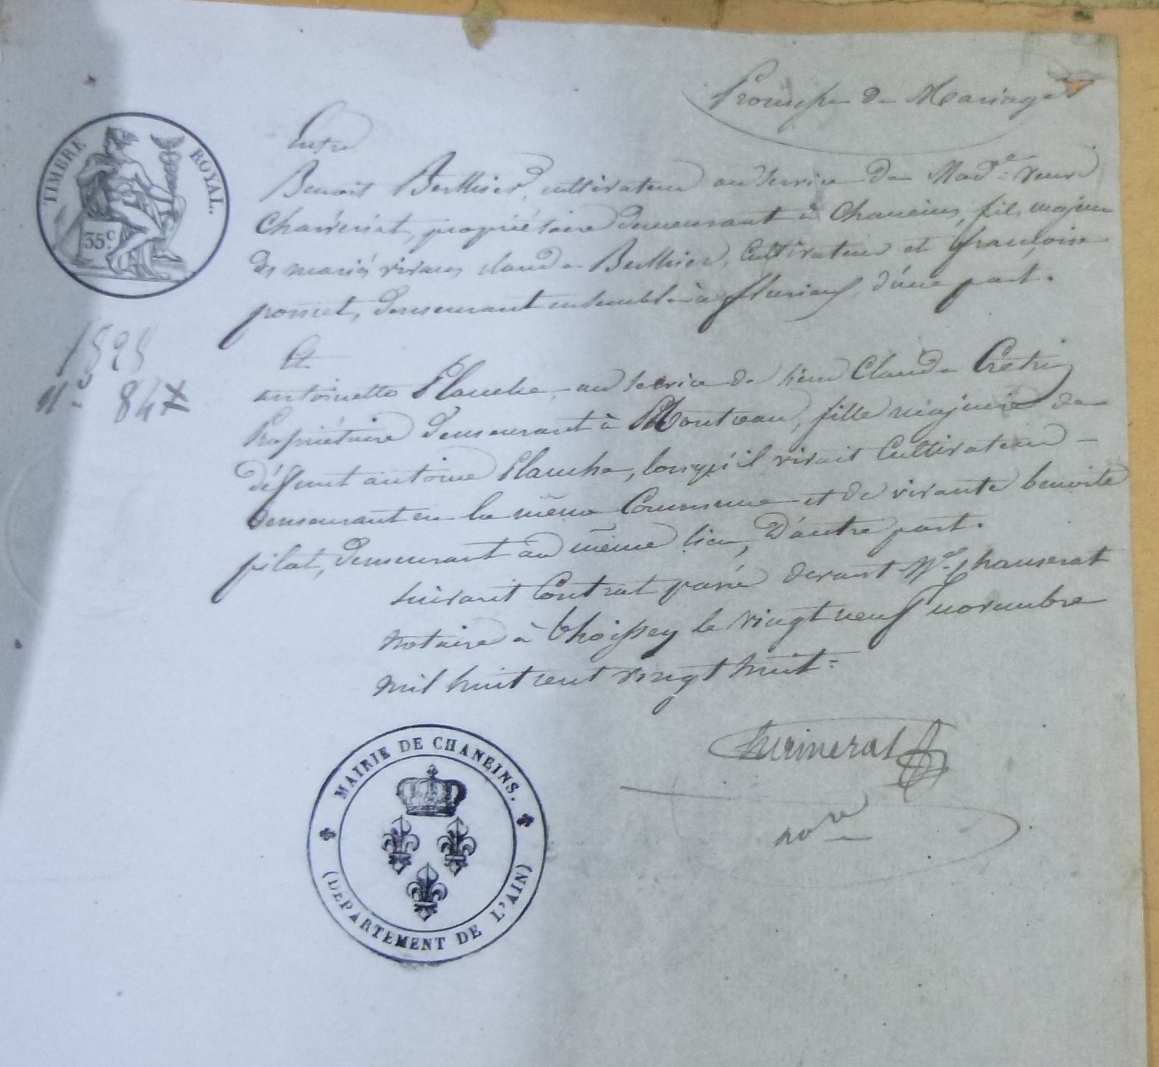 Promesse de Mariage
TIMBRE ROYAL.
35c
Entre
Benoit Berthier, cultivateur au service de Made. veuve
propriétaire demeurant à Chaneins, fils majeur
des mariés vivans claude Berthier, Cultivateur et françoise
poncet, demeurant ensemble à d'une part.
1828
n° 84
Et
antoinette Planche, au service de sieur Claude
Propriétaire demeurant à Montceau, fille majeure de
défunt antoine Planche, lorsqu'il vivait Cultivateur
demeurant en la même Commune et de vivante benoite
pilat, demeurant au même lieu, D'autre part.
suivant Contrat passé devant Me.
notaire à thoissey le vingt neuf novembre
mil huit cent vingt huit.
MAIRIE DE CHANEINS.
(DEPARTEMENT DE L'AIN)